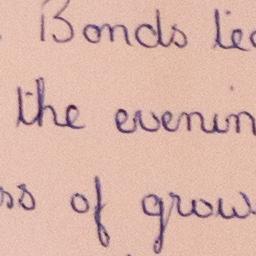 Bonds
the evenin
of grow